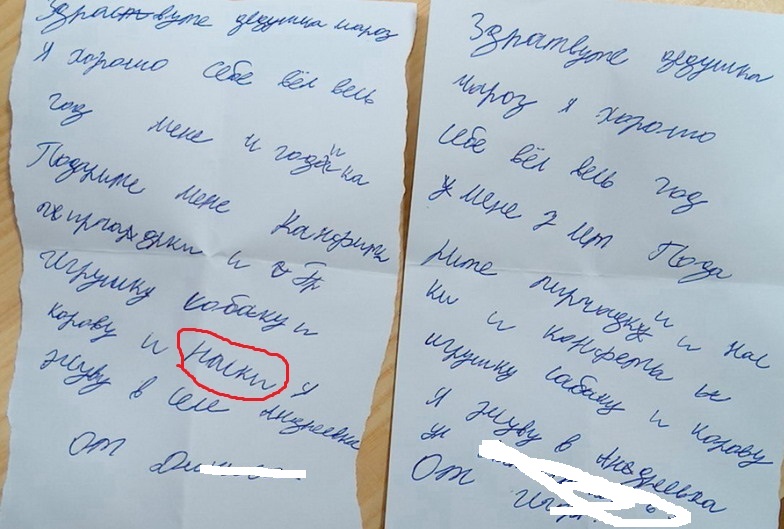 Здраствуте дедушка мароз
Я хорошо себе вёл весь
год мене и годика
Подурите мене канфриты
и
игрушку собаку и
корову и наски я
живу в селе Андреевка
От
Здратвуте дедушка
мароз я хорошо
себе вёл весь год
у мене 7 лет Пода
рите пирчадку и и нас
ки и конфеты и
игрушку сабаку и корову
Я живу в Андреевка
ул
От